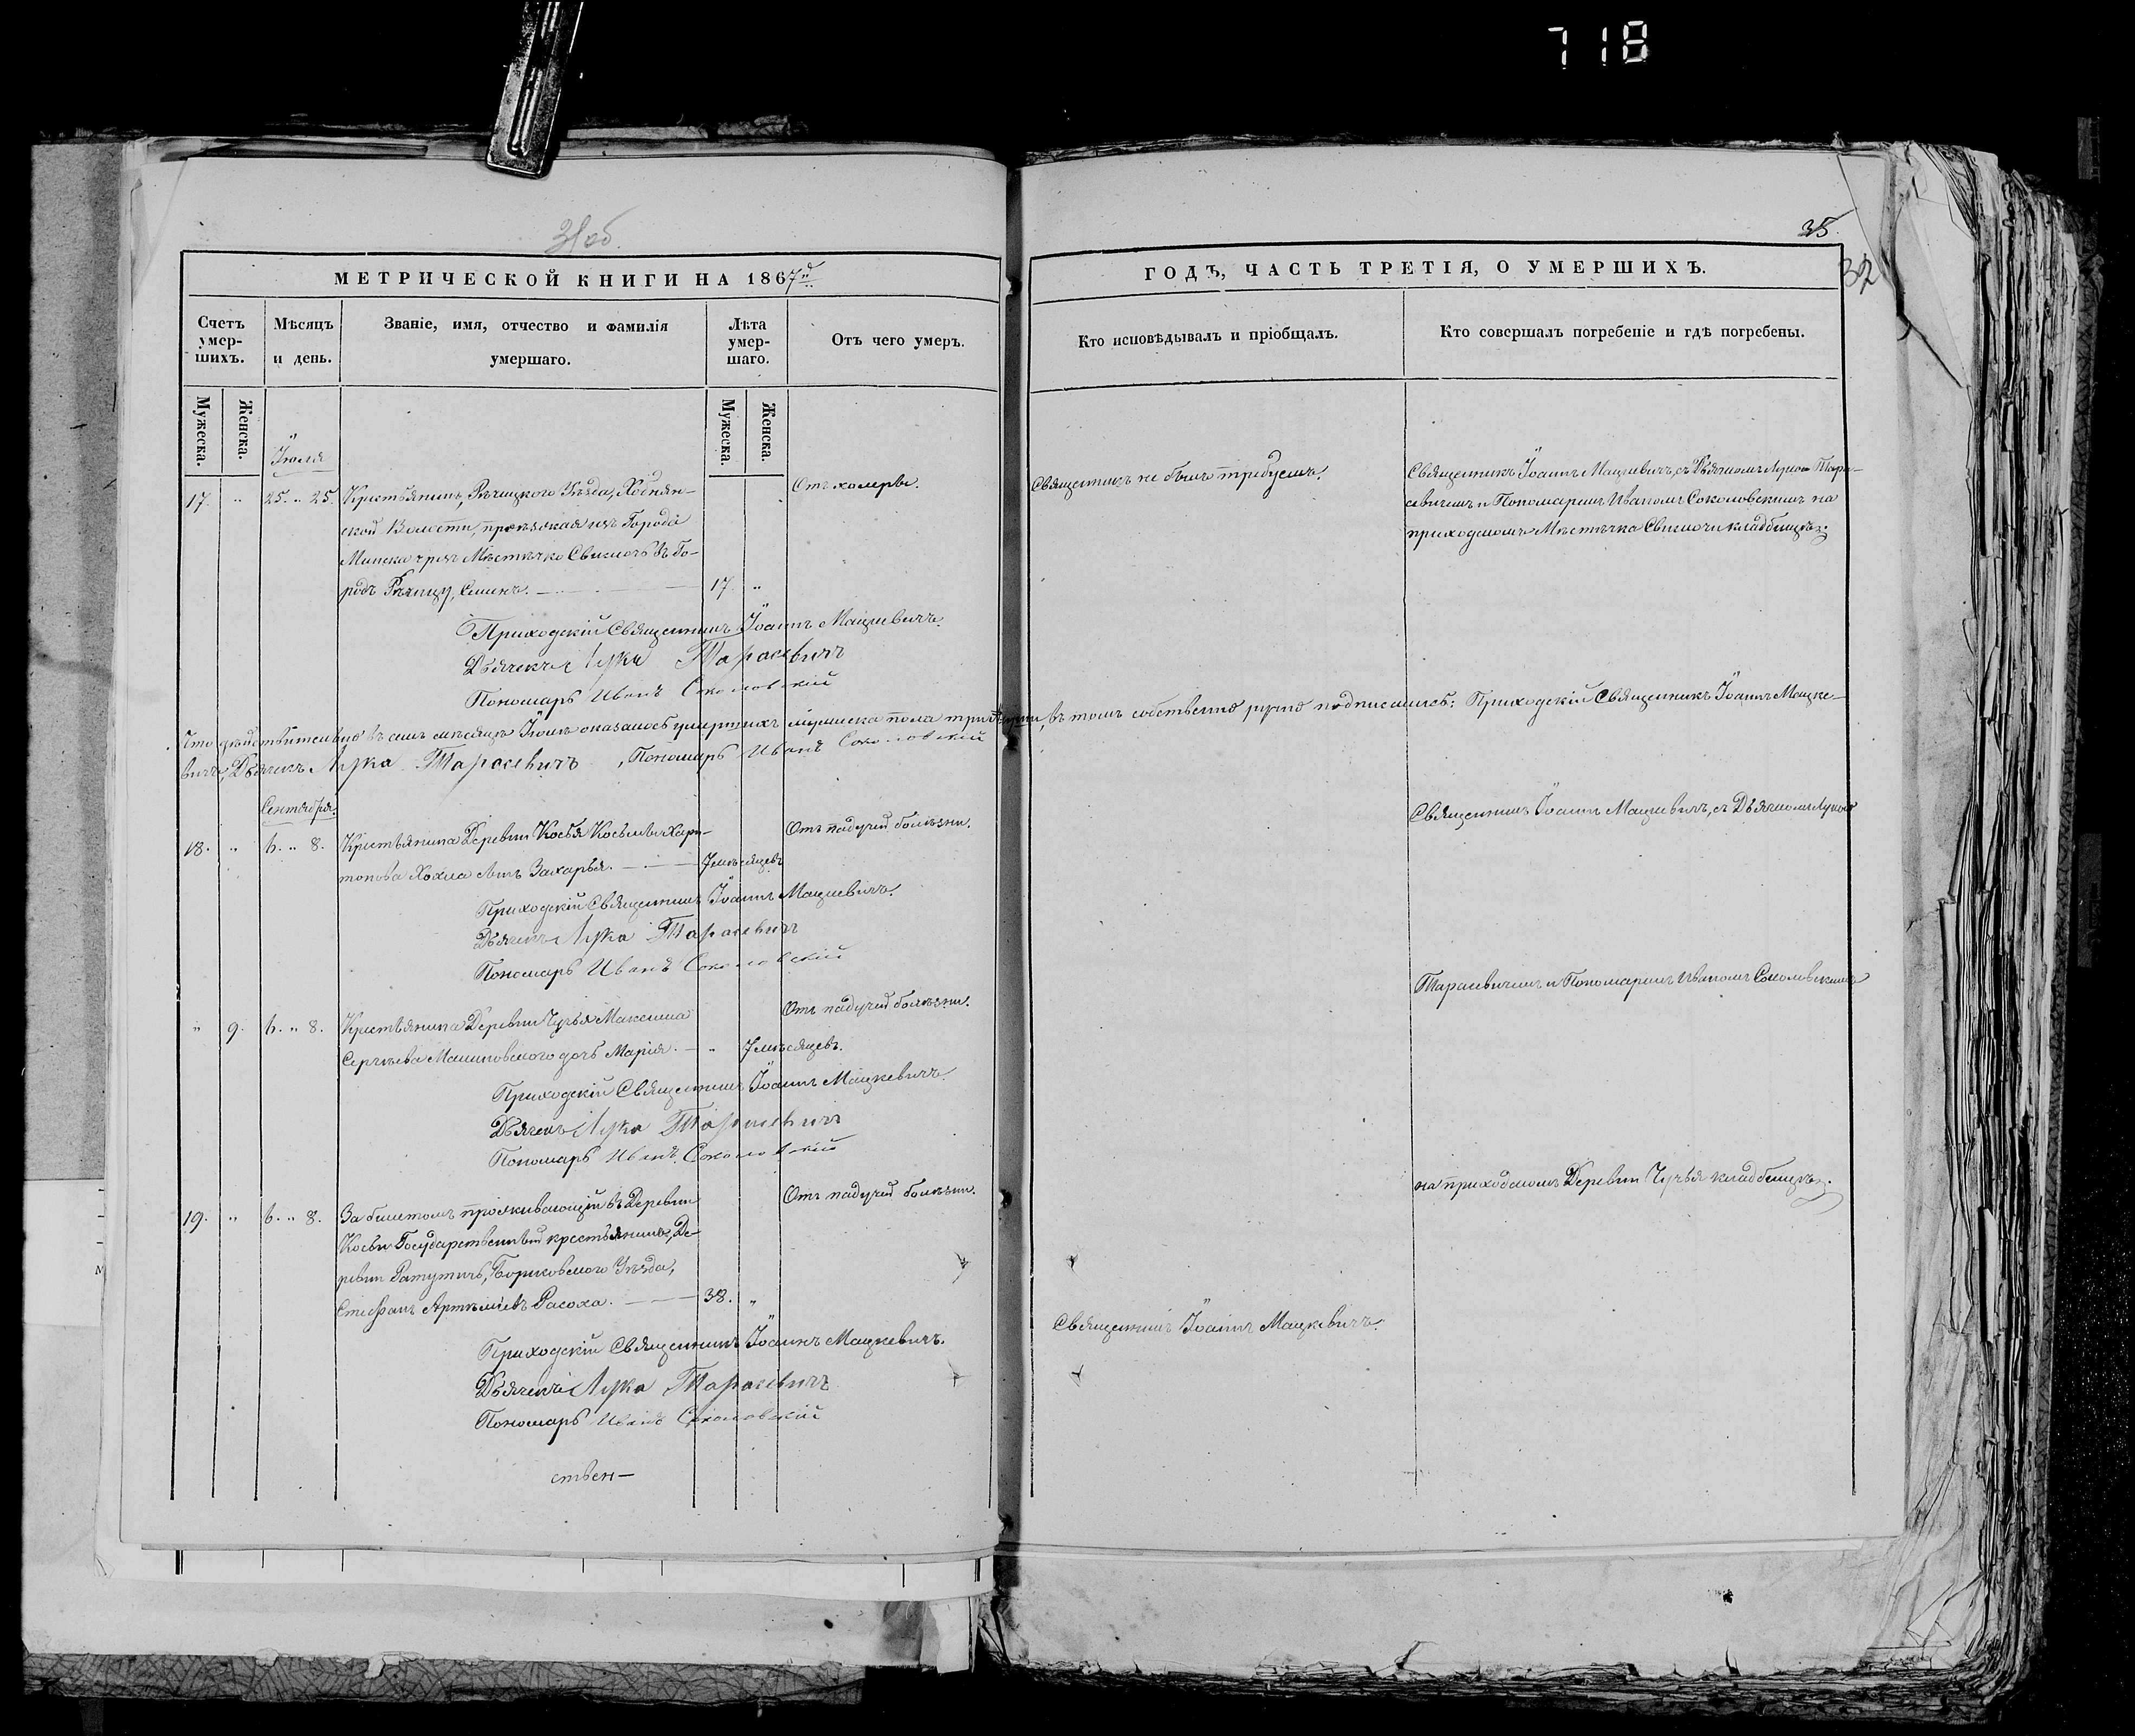 718
31об.
35.
32
МЕТРИЧЕСКОЙ КНИГИ НА 1867й
ГОДЪ, ЧАСТЬ ТРЕТІЯ, О УМЕРШИХЪ.
Счетъ умер-шихъ.
Мѣсяцъ и день.
Званіе, имя, отчество и фамилія умершаго.
Лѣта умер-шаго.
Отъ чего умеръ.
Кто исповѣдывалъ и пріобщалъ.
Кто совершалъ погребеніе и гдѣ погребены.
Мужеска.
Женска.
Мужеска.
Женска.
Іюля
17. " 25. " 25. Крестьянинъ, Рѣчицкаго Уѣзда,
ской Волости, проѣзжая изъ Города
Минска чрезъ Мѣстечко Свислочь въ Го-
родъ Рѣчицу, 17. "
Отъ холеры.
Священникъ не былъ требуемъ.
Священникъ Іоаннъ Мацкевичъ, съ Дьячкомъ Лукою Тара-
севичемъ и Пономаремъ Иваномъ Соколовскимъ на
приходскомъ Мѣстечка Свислочи кладбищѣ.
Приходскій Священникъ Іоаннъ Мацкевичъ.
Дьячекъ Лука Тарасевичъ
Пономарь Иванъ Соколовскій
Что дѣйствительно въ семъ мѣсяцѣ Іюлѣ оказалось умершихъ мужеска пола три въ томъ собственно ручно подписались: Приходскій Священникъ Іоаннъ Мацке-
вичъ, Дьячекъ Лука Тарасевичъ, Пономарь Иванъ Соколовскій
Сентября.
18. " 6. " 8. Крестьянина Деревни Косья Хари-
тонова сынъ Захарья. 7 мѣсяцевъ
Отъ падучей болѣзни.
Священникъ Іоаннъ Мацкевичъ, съ Дьячкомъ Лукою
Приходскій Священникъ Іоаннъ Мацкевичъ.
Дьячекъ Лука Тарасевичъ
Пономарь Иванъ Соколовскій
Тарасевичемъ и Пономаремъ Иваномъ Соколовскимъ
" 9. 6. " 8. Крестьянина Деревни Чучья Максима
Сергѣева Малиновского дочь Марія. " 7 мѣсяцевъ.
Отъ падучей болѣзни.
Приходскій Священникъ Іоаннъ Мацкевичъ.
Дьячекъ Лука Тарасевичъ
Пономарь Иванъ Соколовскій
на приходскомъ Деревни Чучья кладбищѣ.
19. " 6. " 8. За билетомъ проживающій въ Деревни
Косьи Государственный крестьянинъ, Де-
ревни Ратутичъ, Борисовского Уѣзда,
Стефанъ Артѣміевъ Расоха. 38. "
Отъ падучей болѣзни.
Священникъ Іоаннъ Мацкевичъ.
Приходскій Священникъ Іоаннъ Мацкевичъ.
Дьячекъ Лука Тарасевичъ
Пономарь Иванъ Соколовскій
ствен-